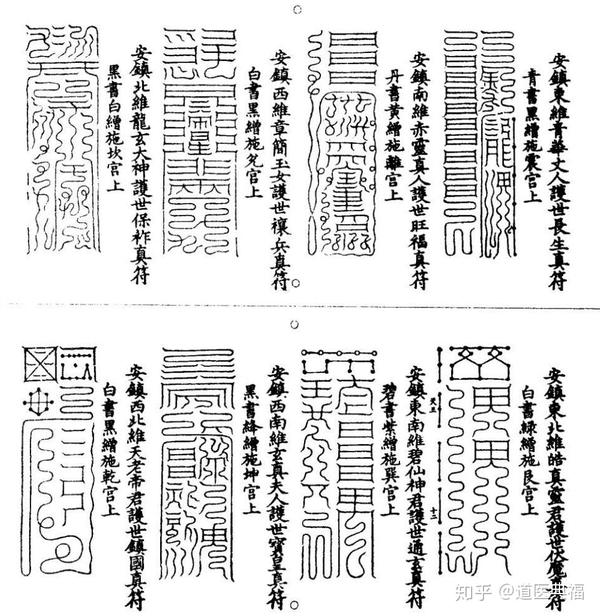 安鎮東維青華丈人護世長生真符
青書黑繒施震宮上
安鎮南維赤靈真人護世旺福真符
丹書黃繒施離宮上
安鎮西維章簡玉女護世禳兵真符
白書黑繒施兌宮上
安鎮北維龍玄大神護世保祚真符
黑書白繒施坎宮上
安鎮東北維皓真靈君護世伏魔真符
白書綠繒施艮宮上
安鎮東南維碧仙神君護世通玄真符
碧書紫繒施巽宮上
安鎮西南維玄真夫人護世寶皇真符
黑書絳繒施坤宮上
安鎮西北維天老帝君護世鎮國真符
白書黑繒施乾宮上
知乎 @道医典福